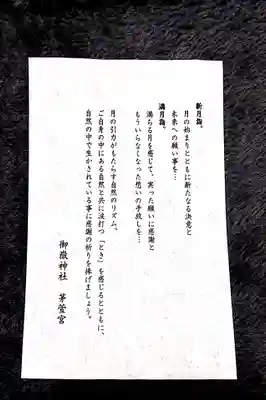 新月詣。
月の始まりとともに新たなる決意と
未来への願い事を…
満月詣。
満ちる月を感じて、実った願いに感謝と
もういらなくなった想いの手放しを…
月の引力がもたらす自然のリズム、
ご自身の中にある自然と共に波打つ「とき」を感じるとともに、
自然の中で生かされている事に感謝の祈りを捧げましょう。
御嶽神社　茅萱宮